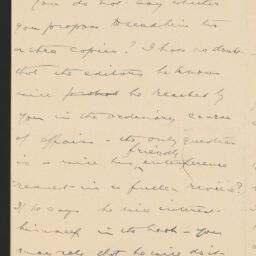 You do not say whether
you propose to send him two
or three copies? I have no doubt
that the editors he knows
will be reached by
you in the ordinary course
of affairs – the only question
is – will his friendly interference
result – in a fuller review?
If he says he will interest
himself in the book – you
may rely that he will do it